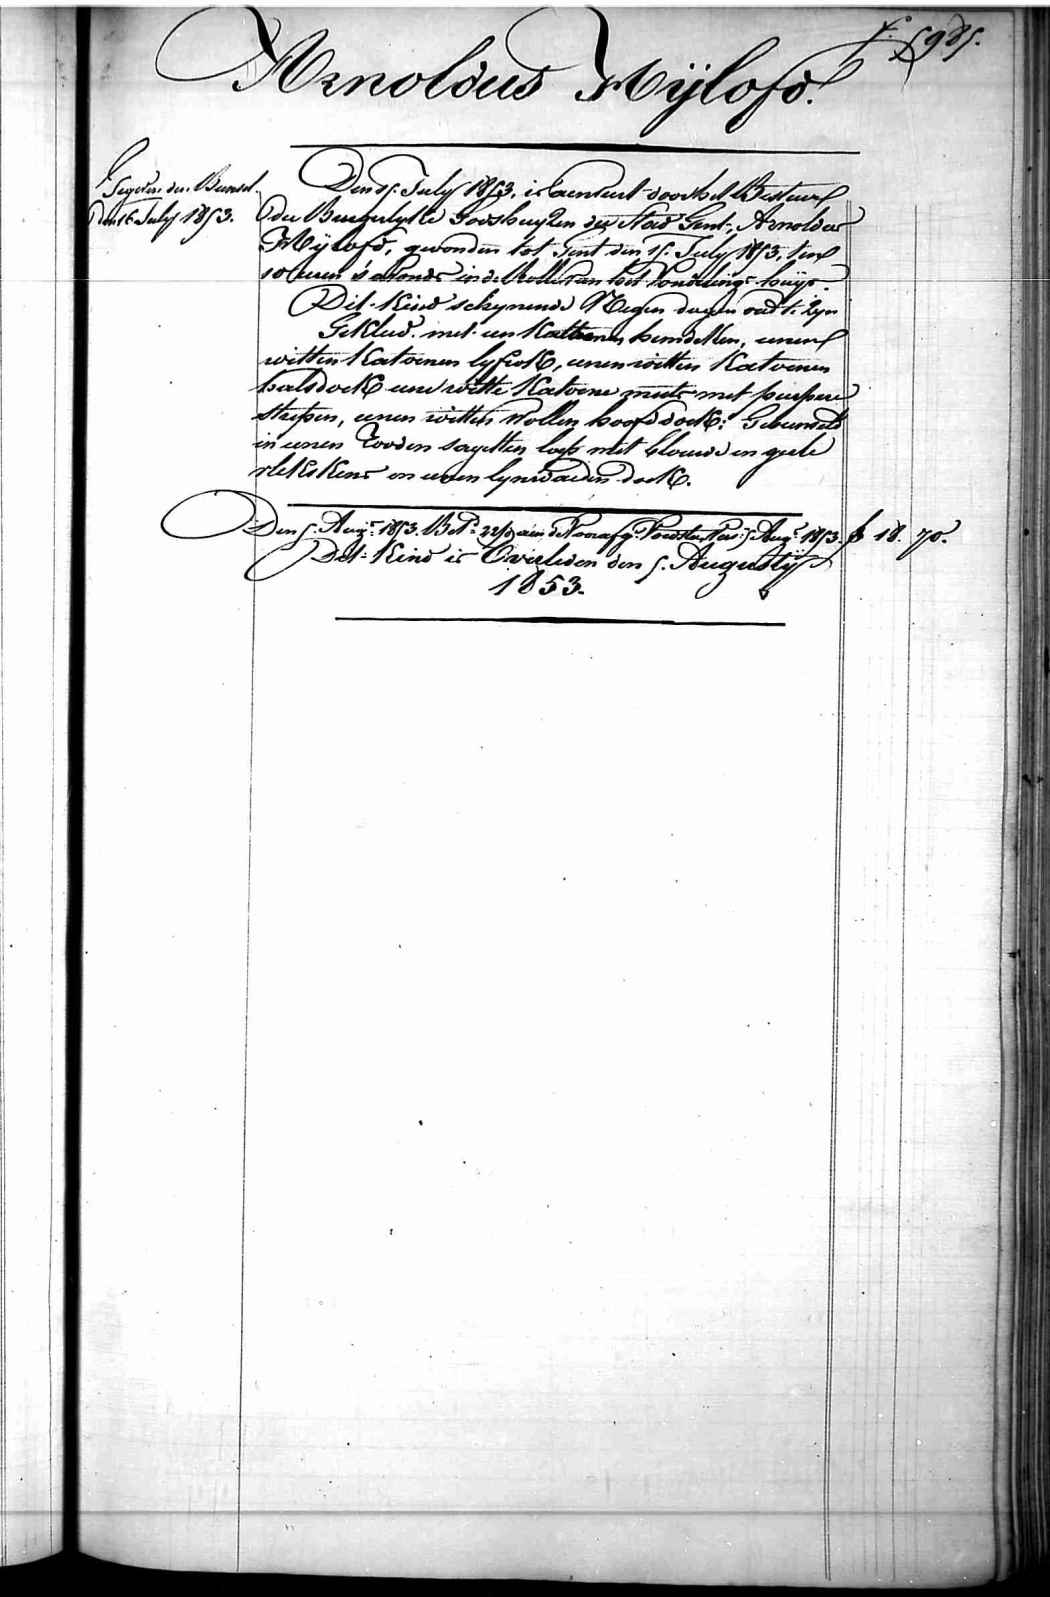 f. 598.
Arnoldus Mÿlofd.
Gegeven den Bussel
den 16 July 1853.
Den 15. July 1853. is aenveert door het Bestuer
der Burgerlyke Godshuyzen der Stad Gent, Arnoldus
Mÿlofd, gevonden tot Gent den 15. July 1853. ten
10 uren s'avonds in de Rolle van het Vondelings huÿs.
Dit Kind schynende Negen dagen oud te Zyn
Gekleed met een Kattoenen hemdeken, eenen
witten Katoenen lyfrok, eenen witten Katoenen
halsdoek eene witte Katoene muts met purpere
strepen, eenen witten Wollen hoofddoek: Gebunseld
in eenen Rooden sayetten lap met blouwe en geele
vlekskens en eenen lynwaeden doek.
Den 5. Augt. 1853. Bet. 22/0 aen de 5 Augt. 1853. f 18. 70.
Dit Kind is Overleden den 5. Augusty
1853.